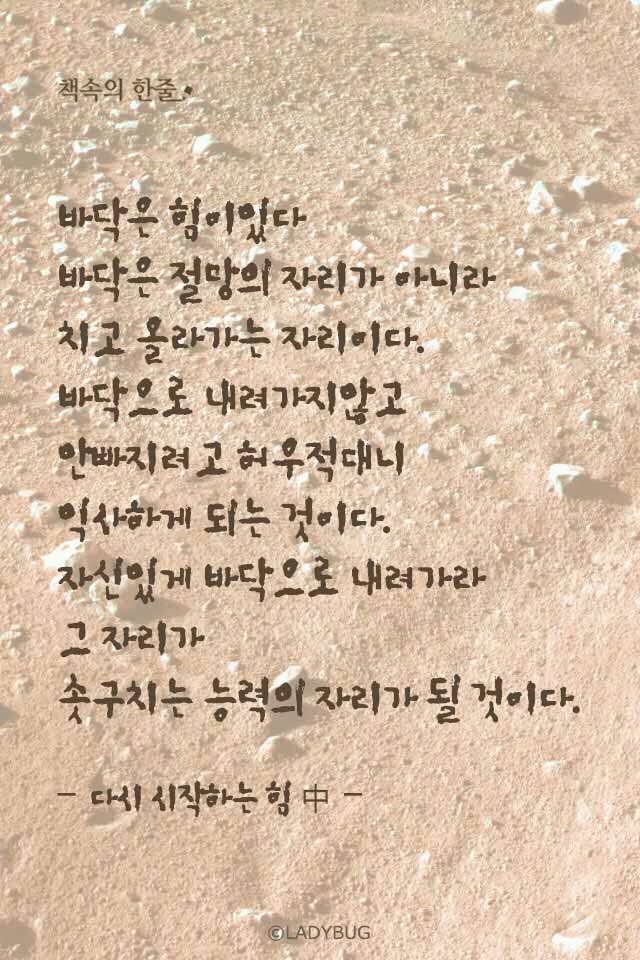 책속의 한줄.
바닥은 힘이있다
바닥은 절망의 자리가 아니라
치고 올라가는 자리이다.
바닥으로 내려가지않고
안빠지려고 허우적대니
익사하게 되는 것이다.
자신있게 바닥으로 내려가라
그 자리가
솟구치는 능력의 자리가 될 것이다.
- 다시 시작하는 힘 中 -
©LADYBUG